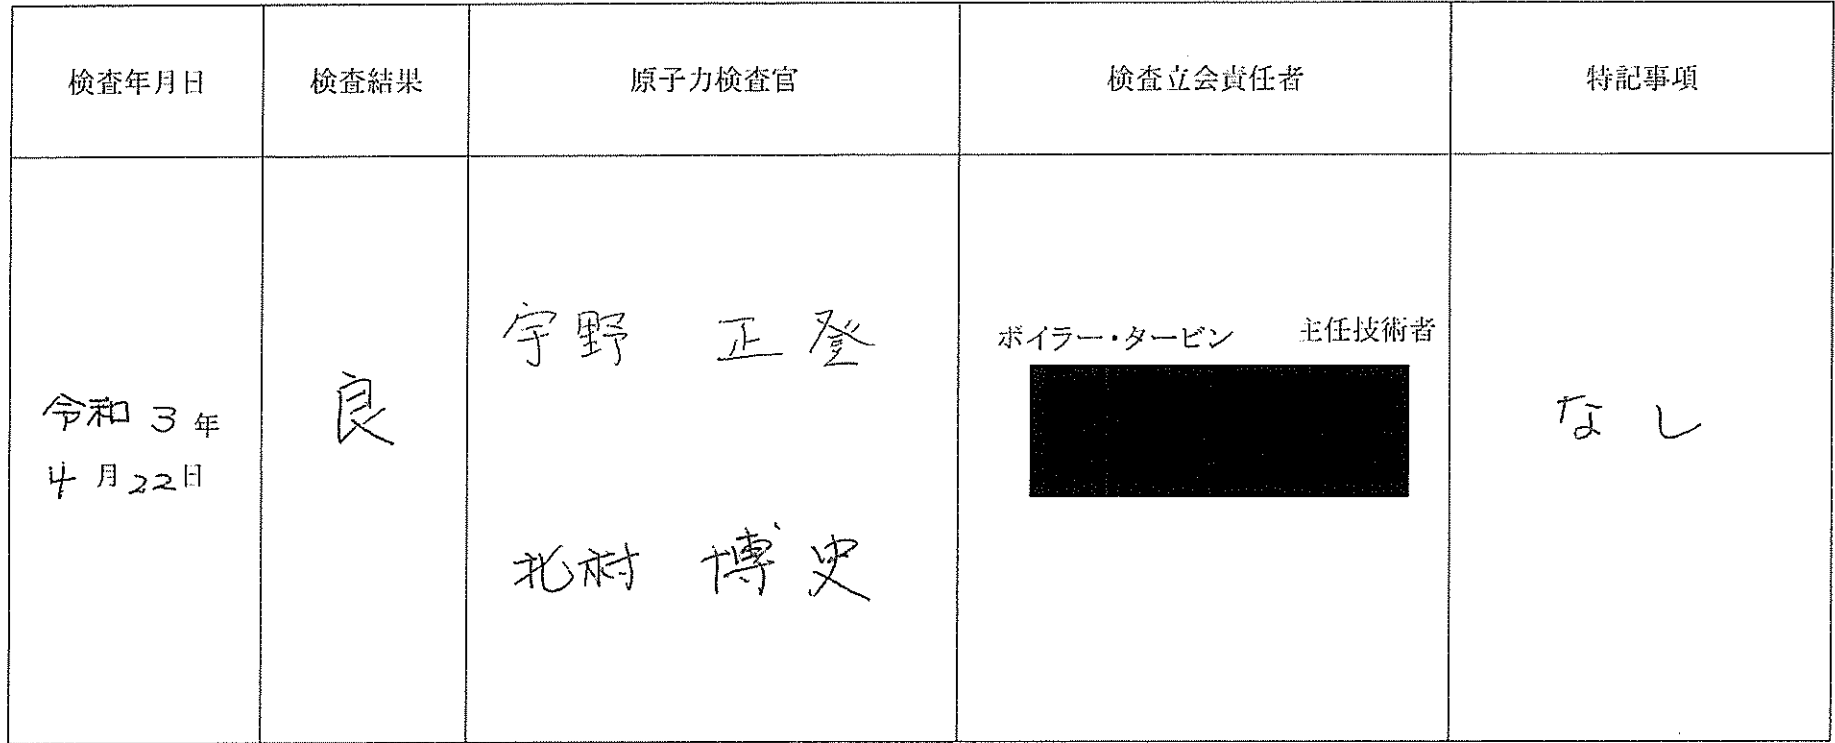 検査年月日 検査結果 原子力検査官 検査立会責任者 特記事項
令和 3 年
4 月 22 日
良
宇野 正登
北村 博史
ボイラー・タービン 主任技術者
なし